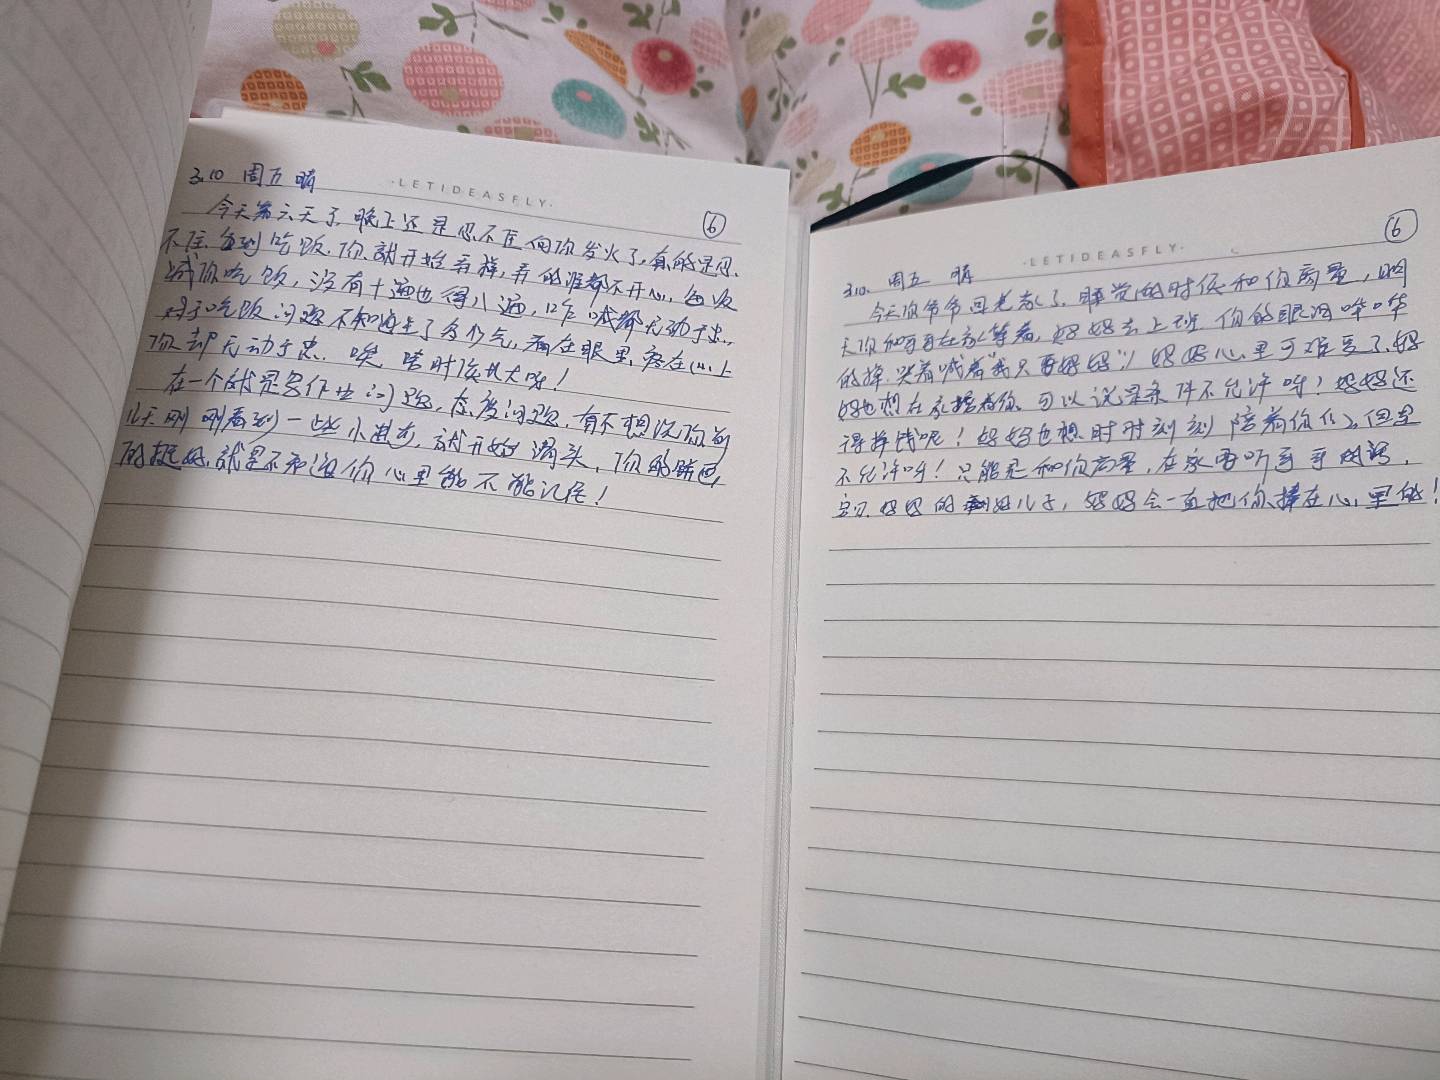 3.10 周五 晴
·LETIDEASFLY.
6
今天第六天了,晚上还是忍不住向你发火了,真的是忍
不住,每到吃饭,你就开始弄样,弄的谁都不开心,每次
喊你吃饭,没有十遍也得八遍,吃 喊都无动于衷,
对于吃饭问题不知道生了多少气,看在眼里,疼在心上
你却无动于衷.唉,啥时候长大呀!
在一个就是写作业问题,态度问题,有不想说你前
几天刚刚看到一些小进步,就开始滑头,你的嘴巴
的挺好,就是不知道你心里能不能记住!
·LETIDEASFLY.
6
3.10. 周五 晴
今天你爷爷回老家了,睡觉的时候和你商量,明
天你和哥哥在家等着,妈妈去上班,你的眼泪哗哗
的掉,哭着喊着"我只要妈妈"! 妈妈心里可难受了,妈
妈也想在家搂着你,可以说是条件不允许呀!妈妈还
得挣钱呢!妈妈也想时时刻刻陪着你们,但是
不允许呀!只能是和你商量,在家要听哥哥的话,
宝贝,妈妈的好儿子,妈妈会一直把你捧在心里的!